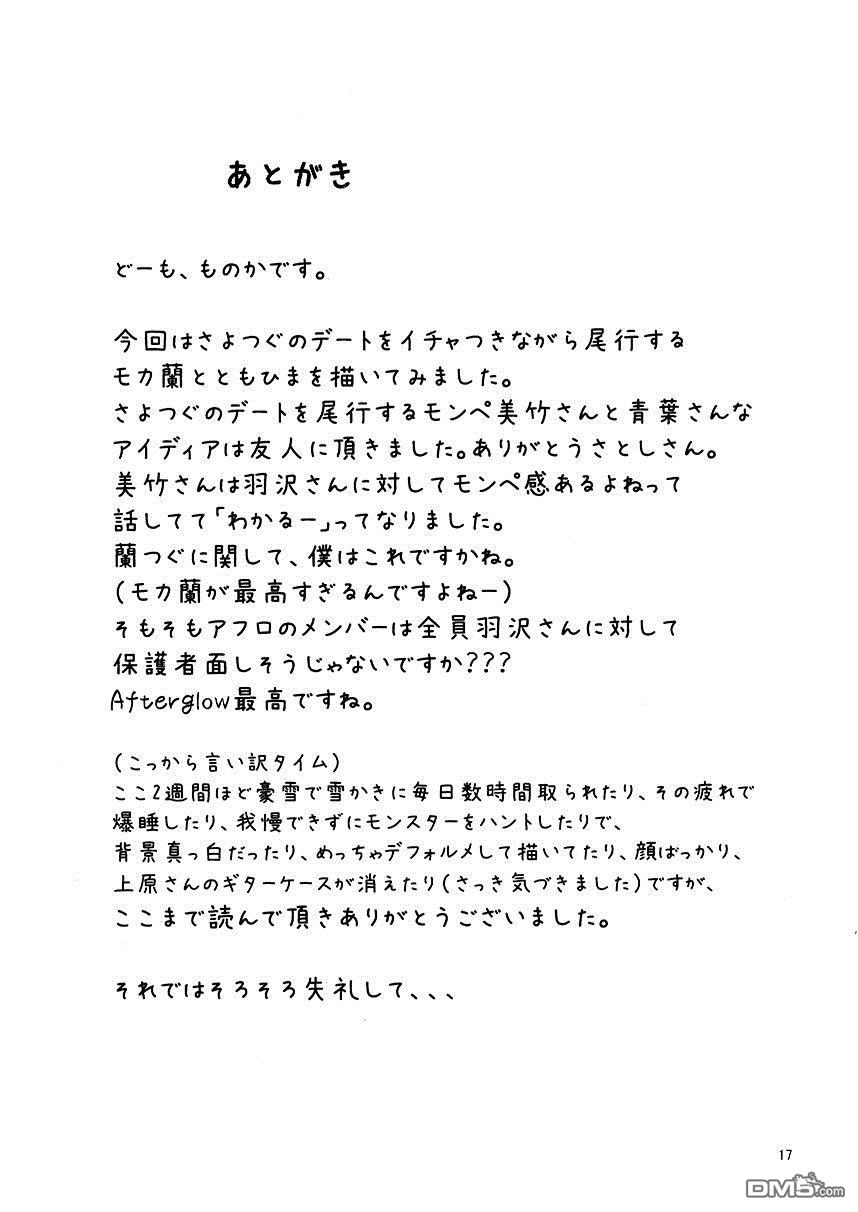 あとがき
どーも、ものかです。
今回はさよつぐのデートをイチャつきながら尾行する
モカ蘭とともひまを描いてみました。
さよつぐのデートを尾行するモンペ美竹さんと青葉さんな
アイディアは友人に頂きました。ありがとうさとしさん。
美竹さんは羽沢さんに対してモンペ感あるよねって
話してて「わかるー」ってなりました。
蘭つぐに関して、僕はこれですかね。
(モカ蘭が最高すぎるんですよねー)
そもそもアフロのメンバーは全員羽沢さんに対して
保護者面しそうじゃないですか???
Afterglow最高ですね。
(こっから言い訳タイム)
ここ2週間ほど豪雪で雪かきに毎日数時間取られたり、その疲れで
爆睡したり、我慢できずにモンスターをハントしたりで、
背景真っ白だったり、めっちゃデフォルメして描いてたり、顔ばっかり、
上原さんのギターケースが消えたり(さっき気づきました)ですが、
ここまで読んで頂きありがとうございました。
それではそろそろ失礼して、、、
17
DM5.com